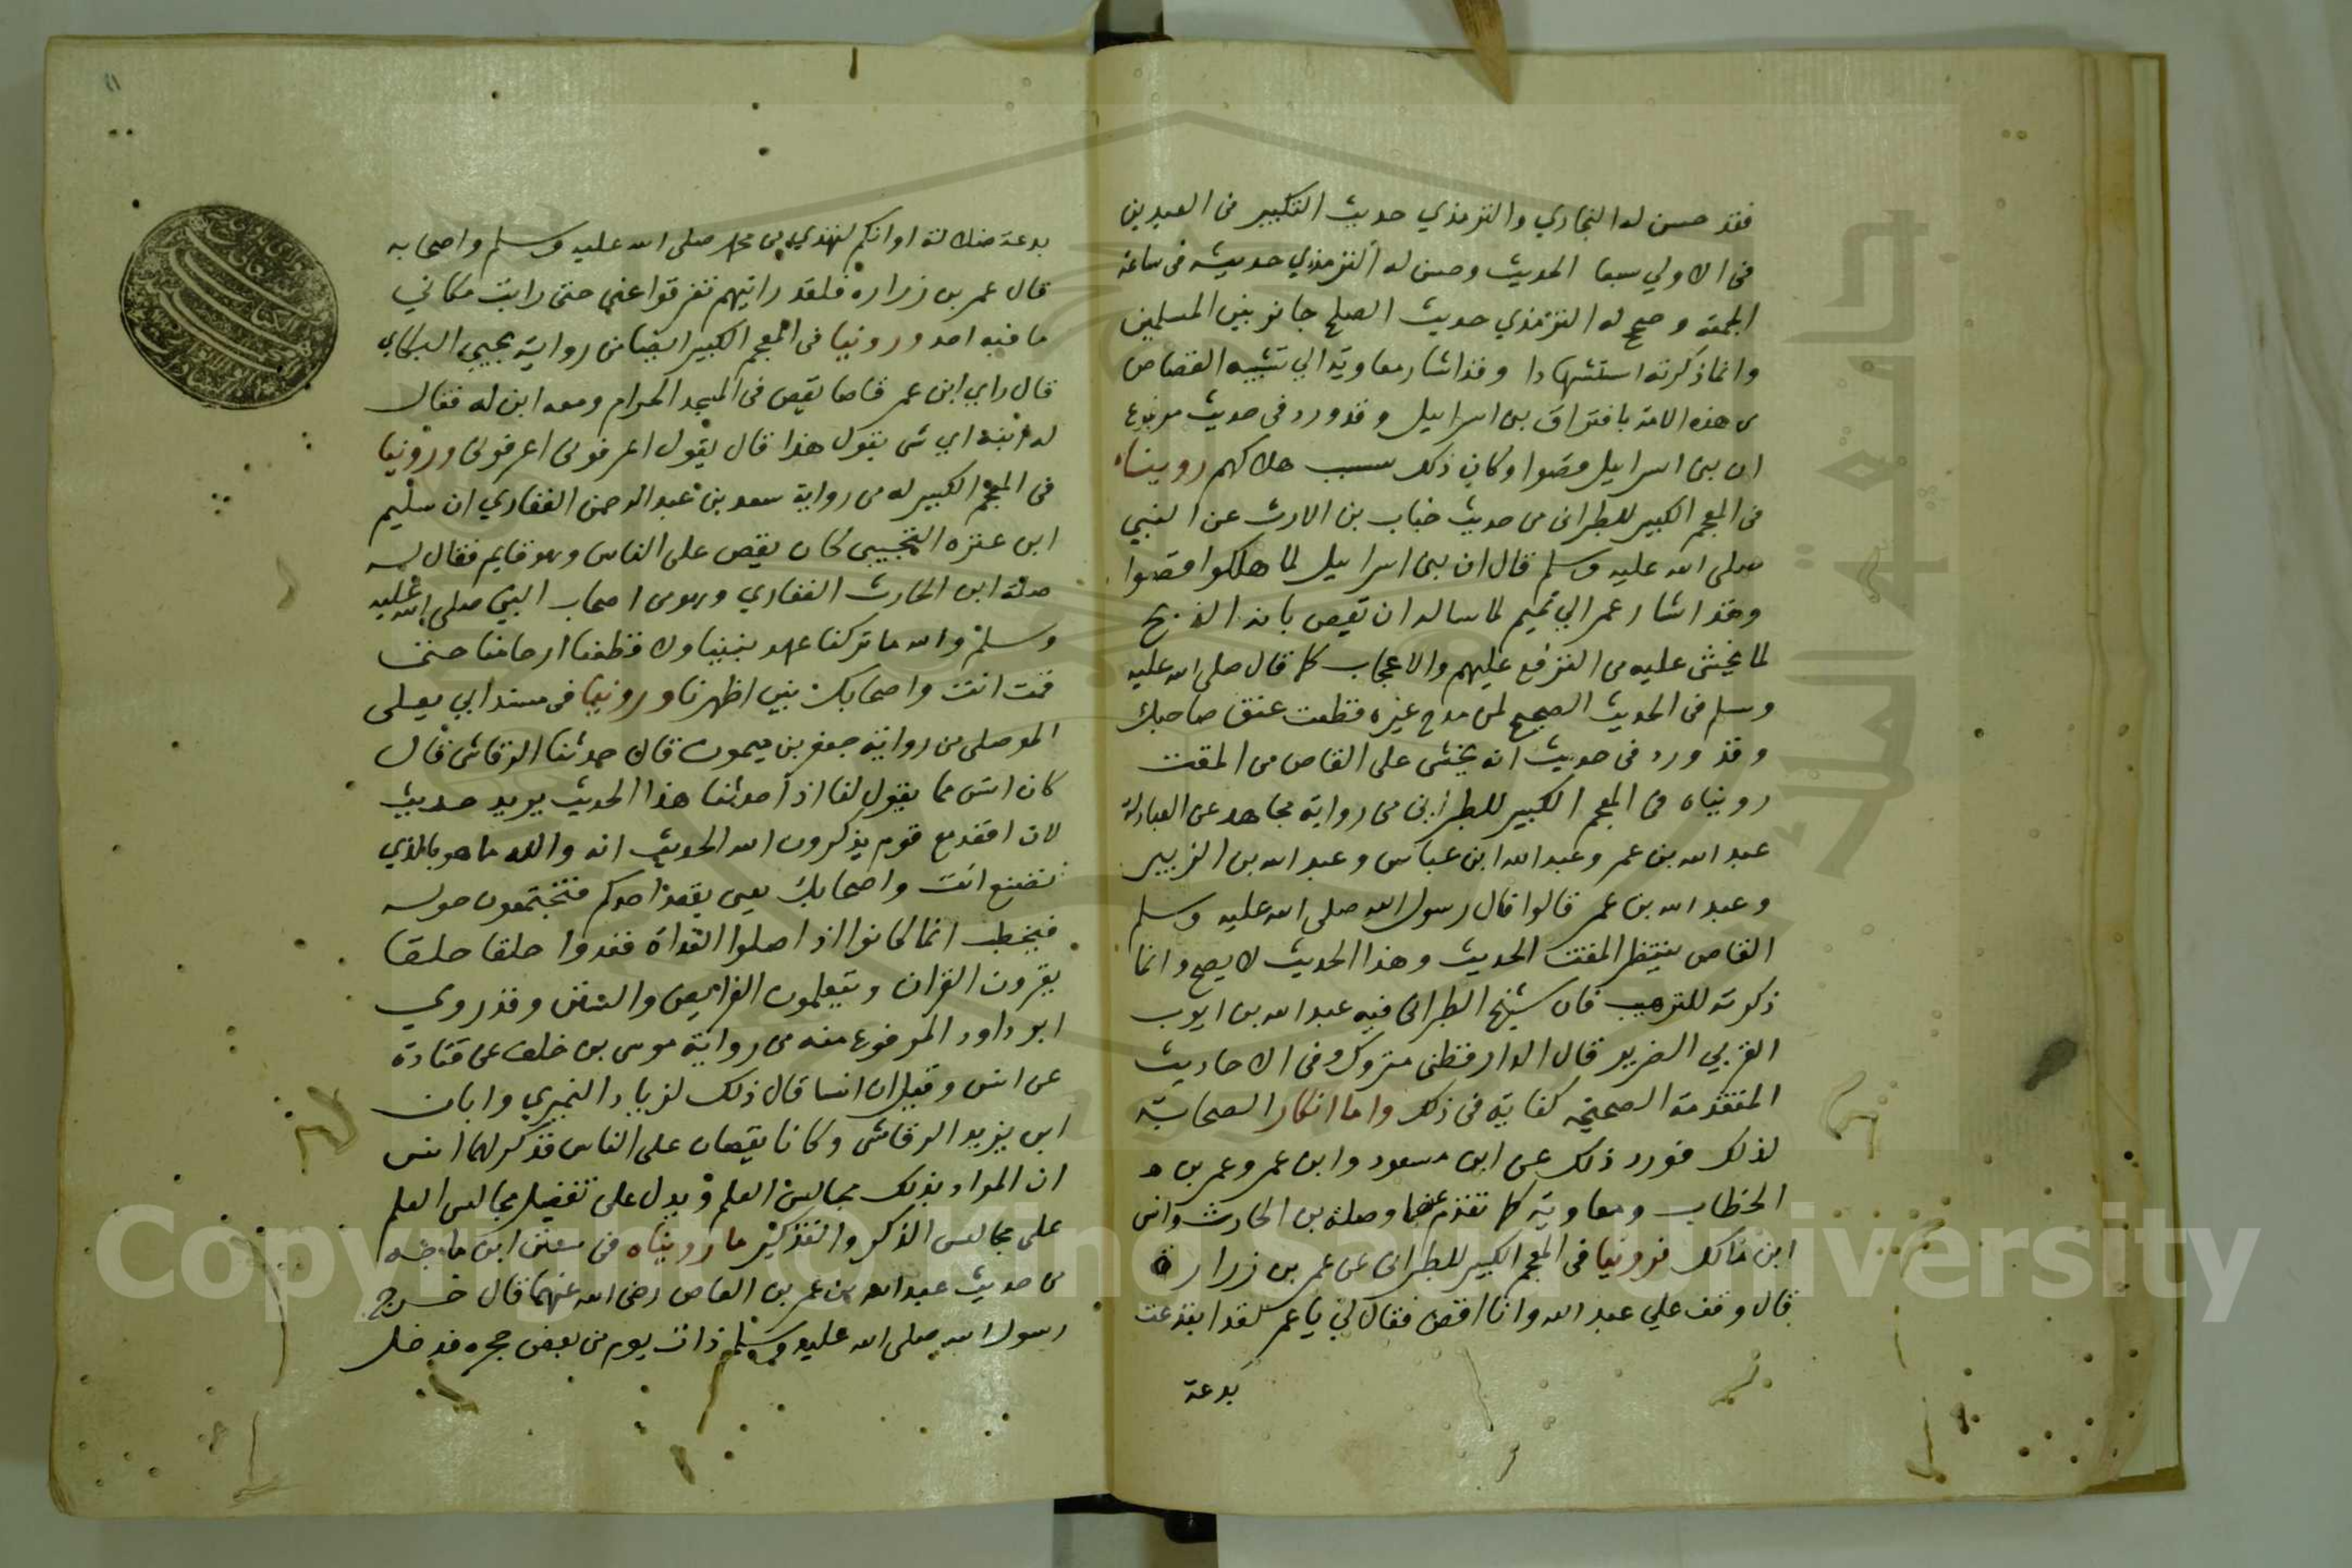 فقد حسن له البخاري والترمذي حديث التكبير فى العيدين
فى الاولي سبعا الحديث وحسن له الترمذي حديثه فى ساعة
الجمعة وصحح له الترمذي حديث الصلح جائز بين المسلمين
وانما ذكرته استشهادا وقد اشار معاوية الي تشبيه القصاص
من هذه الامة بافتراق بني اسرايل وقد ورد فى حديث مرفوع
ان بنى اسرايل قصوا وكان ذلك سبب هلاكهم رويناه
فى المعجم الكبير للطبرانى من حديث خباب بن الارت عن النبي
صلى الله عليه وسلم قال ان بنى اسرايل لما هلكوا قصوا
وقد اشار عمر الي تميم لما ساله ان يقص بانه الذبح
لما يخشى عليه من الترفع عليهم والاعجاب كما قال صلى الله عليه
وسلم فى الحديث الصحيح لمن مدح غيره قطعت عنق صاحبك
وقد ورد فى حديث انه يخشى على القاص من المقت
رويناه فى المعجم الكبير للطبرانى من رواية مجاهد عن العبادلة
عبد الله بن عمر وعبد الله ابن عباس وعبد الله بن الزبير
وعبد الله بن عمر قالوا قال رسول الله صلى الله عليه وسلم
القاص ينتظر المقت الحديث وهذا الحديث لا يصح وانما
ذكرته للترهيب فان شيخ الطبرانى فيه عبد الله بن ايوب
القربي الضرير قال الدارقطنى متروك وفى الاحاديث
المتقدمة الصحيحة كفاية فى ذلك واما انكار الصحابة
لذلك فورد ذلك عن ابن مسعود وابن عمر وعمر بن
الخطاب ومعاوية كما تقدم عنهما وصلة بن الحارث وانس
ابن مالك فروينا فى المعجم الكبير للطبرانى عن عمر بن زرارة
قال وقف علي عبد الله وانا اقص فقال لى يا عمر لقد ابتدعت
بدعة
بدعة ضلالة او انكم لاهدي من محمد صلى الله عليه وسلم واصحابه
قال عمر بن زرارة فلقد رايتهم تفرقوا عنى حتى رايت مكاني
ما فيه احد وروينا فى المعجم الكبير ايضا من رواية يحيي البكاي
قال راي ابن عمر قاصا يقص فى المسجد الحرام ومعه ابن له فقال
له ابنه اي شى يقول هذا قال يقول اعرفونى اعرفونى وروينا
فى المعجم الكبير له من رواية سعد بن عبد الرحمن الغفاري ان سليم
ابن عنزه التجيبى كان يقص على الناس وهو قايم فقال له
صلة ابن الحارث الغفاري وهو من اصحاب النبى صلى الله عليه
وسلم والله ما تركنا عهد نبينا ولا قطعنا ارحامنا حتى
قمت انت واصحابك بين اظهرنا وروينا فى مسند ابي يعلى
الموصلى من رواية جعفر بن ميمون قال حدثنا الرقاشى قال
كان انس مما يقول لنا اذا حدثنا هذا الحديث يريد حديث
لان اقعد مع قوم يذكرون الله الحديث انه والله ما هو بالذي
تصنع انت واصحابك يعنى يقعد احدكم فتجتمعون حوله
فيخطب انما كانوا اذا صلوا الغداة قعدوا حلقا حلقا
يقرون القران ويتعلمون الفرايض والسنن وقد روي
ابو داود المرفوع منه من رواية موسى بن خلف عن قتادة
عن انس وقيل ان انسا قال ذلك لزياد النميري وابان
ابن يزيد الرقاشى وكانا يقصان على الناس فذكر لهما انس
ان المراد بذلك مجالس العلم ويدل على تفضيل مجالس العلم
على مجالس الذكر والتذكير ما رويناه فى سنن ابن ماجه
من حديث عبد الله بن عمر بن العاص رضى الله عنهما قال خرج
رسول الله صلى الله عليه وسلم ذات يوم من بعض حجره فدخل
Copyright © King Saud University